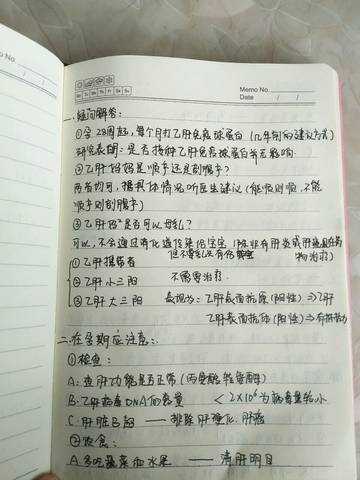 Memo No.
Mo Tu We Th Fr Sa Su
Memo No.
Date / /
一.疑问解答:
①孕28周起,每个月打乙肝免疫球蛋白(几年前的建议方式)
研究表明:是否接种乙肝免疫球蛋白并无影响.
②乙肝妈妈是顺产还是剖腹产?
两者均可,据具体情况听医生建议(能顺则顺,不能
顺产则剖腹产)
③乙肝妈是否可以母乳?
可以,不会通过乳化道传染给宝宝(除非有肝炎或肝
但不管乳汁有何 物治疗)
①乙肝携带者
②乙肝小三阳 不需要治疗.
③乙肝大三阳 表现为:乙肝表面抗原(阳性)⇒乙肝
乙肝表面抗体(阳性)⇒有抵抗力
二.在孕期应注意:
①检查:
A:查肝功能是否正常(两受酶转氨酶)
B.乙肝病毒DNA的载量 <2×10⁶为病毒量较小
C.肝脏B超 —— 排除肝硬化.肝癌
②饮食:
A.多吃蔬菜和水果 —— 清肝明目